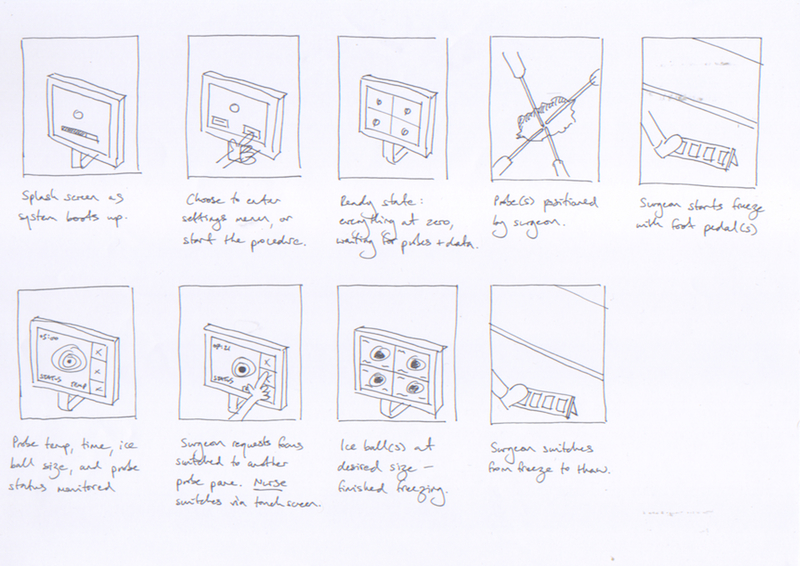 Splash screen as
system boots up.
Choose to enter
settings menu, or
start the procedure.
Ready state:
everything at zero,
waiting for probes + data.
Probe(s) positioned
by surgeon.
Surgeon starts freeze
with foot pedal(s)
STATUS TEMP
Probe temp, time, ice
ball size, and probe
status monitored
STATUS
Surgeon requests focus
switched to another
probe pane. Nurse
switches via touchscreen.
Ice ball(s) at
desired size —
finished freezing.
Surgeon switches
from freeze to thaw.